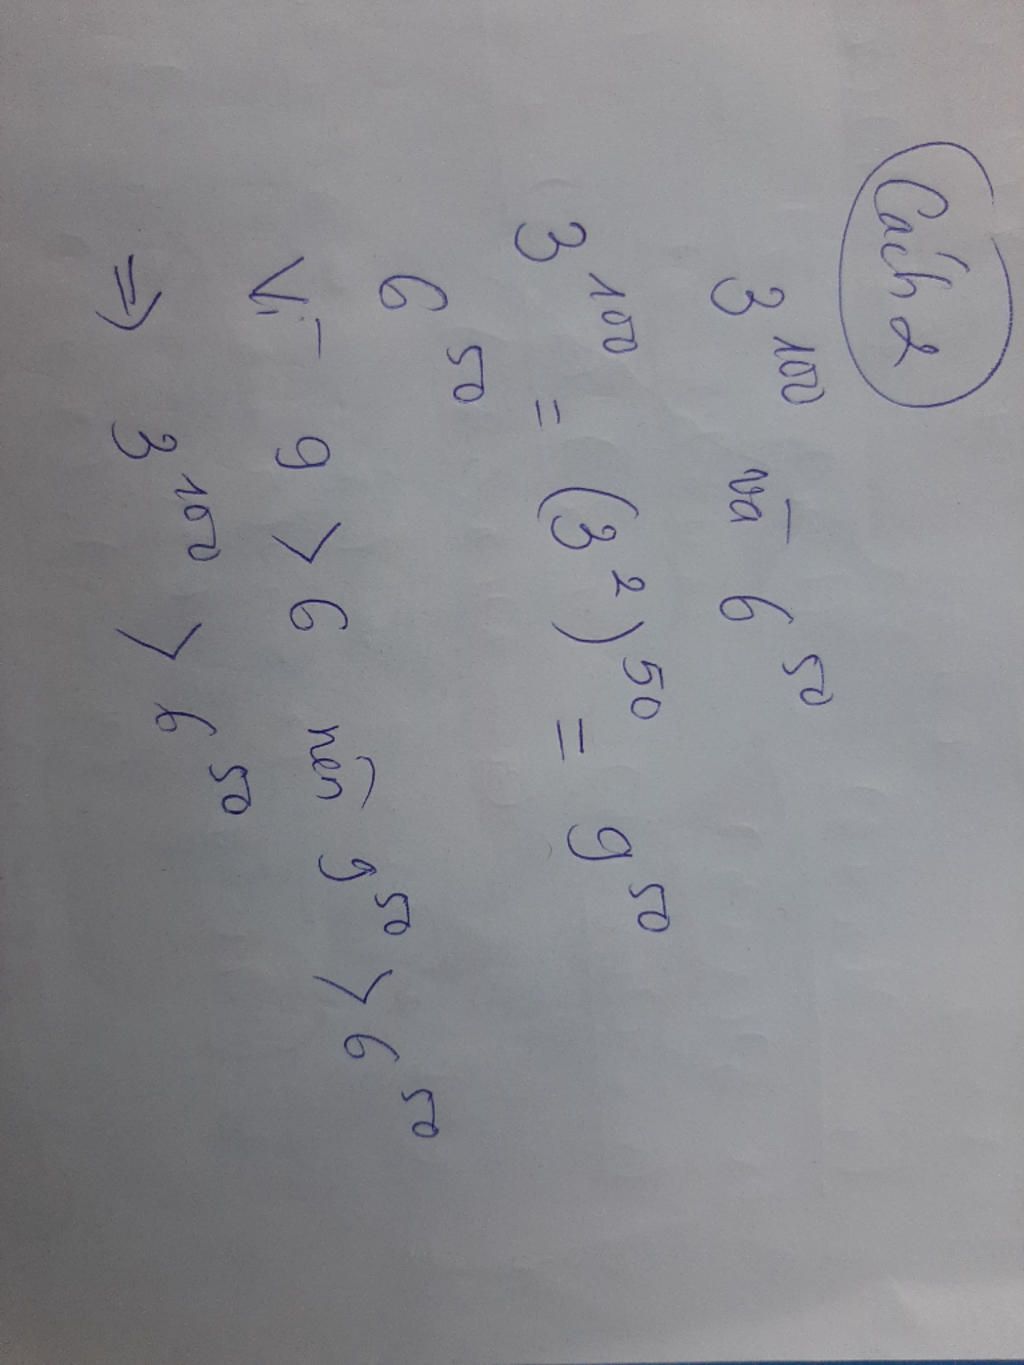 Cách 2
3^100 và 6^50
3^100 = (3^2)^50 = 9^50
6^50
Vì 9 > 6 nên 9^50 > 6^50
⇒ 3^100 > 6^50